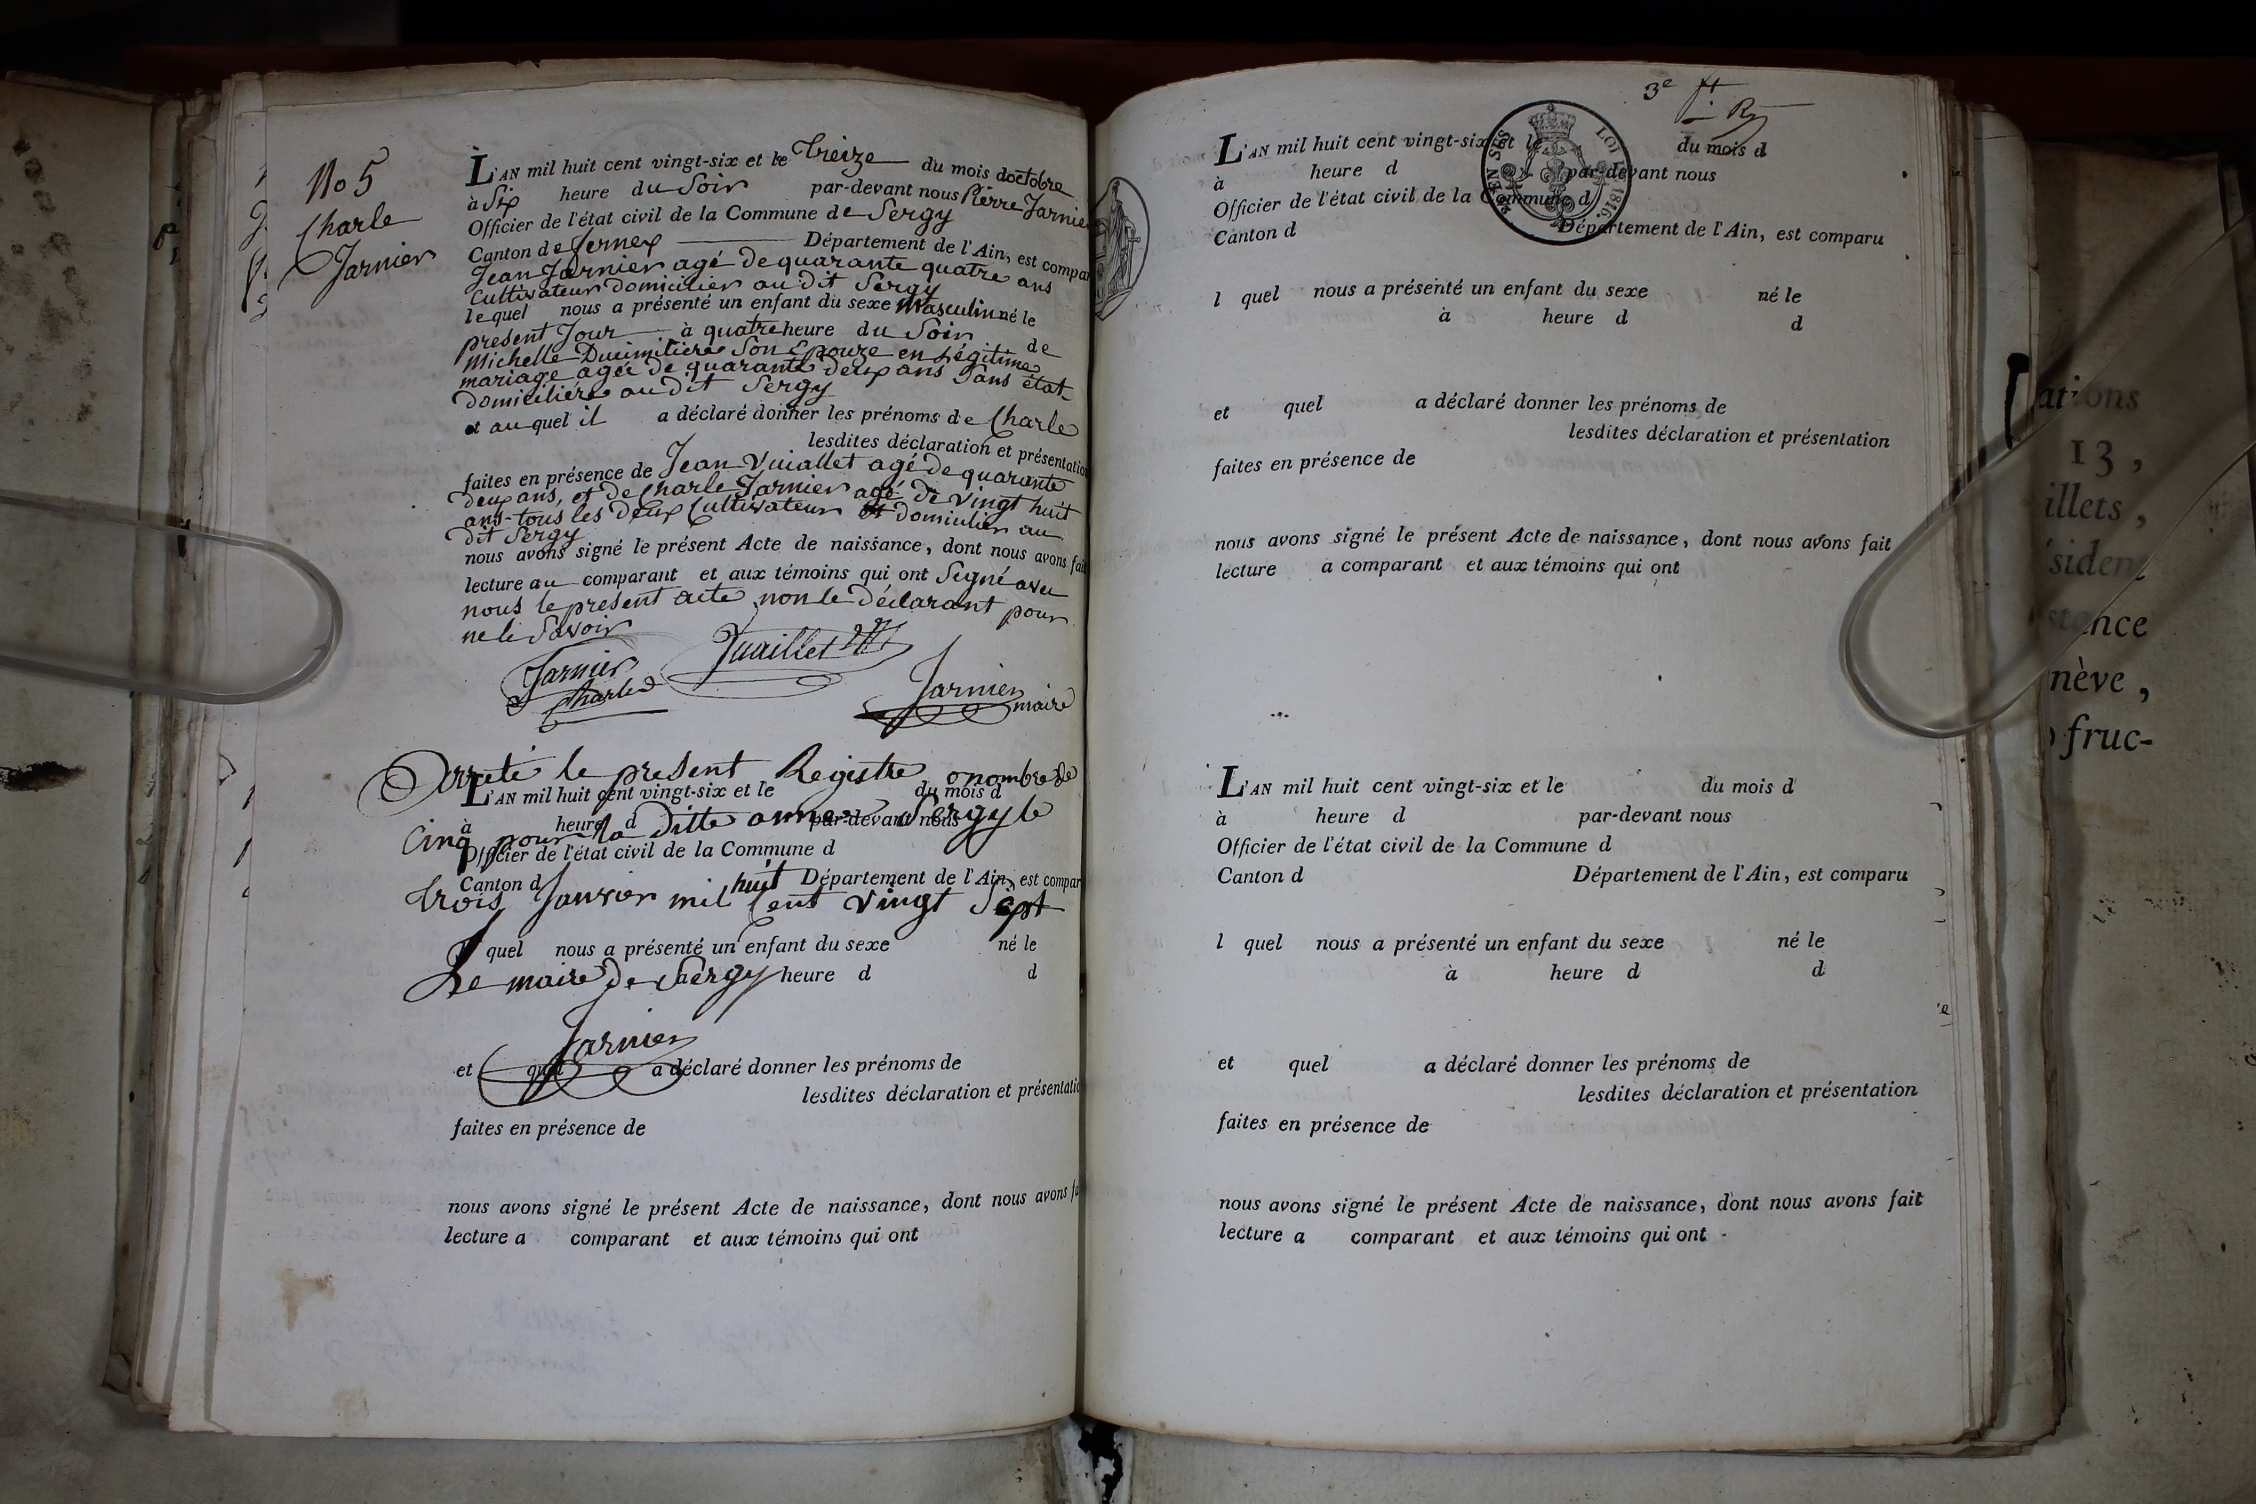 No 5
Charle
Jarnier
L'AN mil huit cent vingt-six et le treize du mois doctobre
à Six heure du Soir par-devant nous Pierre Jarnier
Officier de l'état civil de la Commune de Sergy
Canton de fernex Département de l'Ain, est compar
Jean Jarnier agé de quarante quatre ans
Cultivateur domicilier au dit Sergy
lequel nous a présenté un enfant du sexe masculin né le
present Jour à quatre heure du Soir de
Michelle Son Epouze en Légitime
mariage agée de quarante deux ans Sans état
domiciliére au dit Sergy
et auquel il a déclaré donner les prénoms de Charle
lesdites déclaration et présentation
faites en présence de Jean Vuiallet agé de quarante
deux ans, et de Charle Jarnier agé de vingt huit
ans tous les deux Cultivateur et domicilier au
dit Sergy
nous avons signé le présent Acte de naissance, dont nous avons fait
lecture au comparant et aux témoins qui ont Signé avec
nous le present acte non le déclarant pour
ne le Savoir
Jarnier
Charle
Vuaillet
Jarnier
maire
Arreté le present Registre a nombre de
L'AN mil huit cent vingt-six et le du mois d
à heure d par-devant nous
Cinq pour la ditte année Sergy le
Officier de l'état civil de la Commune d
Canton d Département de l'Ain, est compar
trois Janvier mil huit Cent vingt Sept
l quel nous a présenté un enfant du sexe né le
Le maire de Sergy heure d d
Jarnier
et quel a déclaré donner les prénoms de
lesdites déclaration et présentatio
faites en présence de
nous avons signé le présent Acte de naissance, dont nous avons fa
lecture a comparant et aux témoins qui ont
3e
LOI 1816.
EN SUS
L'AN mil huit cent vingt-six et le du mois d
à heure d par-devant nous
Officier de l'état civil de la Commune d
Canton d Département de l'Ain, est comparu
l quel nous a présenté un enfant du sexe né le
à heure d d
et quel a déclaré donner les prénoms de
lesdites déclaration et présentation
faites en présence de
nous avons signé le présent Acte de naissance, dont nous avons fait
lecture a comparant et aux témoins qui ont
L'AN mil huit cent vingt-six et le du mois d
à heure d par-devant nous
Officier de l'état civil de la Commune d
Canton d Département de l'Ain, est comparu
l quel nous a présenté un enfant du sexe né le
à heure d d
et quel a déclaré donner les prénoms de
lesdites déclaration et présentation
faites en présence de
nous avons signé le présent Acte de naissance, dont nous avons fait
lecture a comparant et aux témoins qui ont
ations
13,
illets,
siden
stance
nève,
fruc-